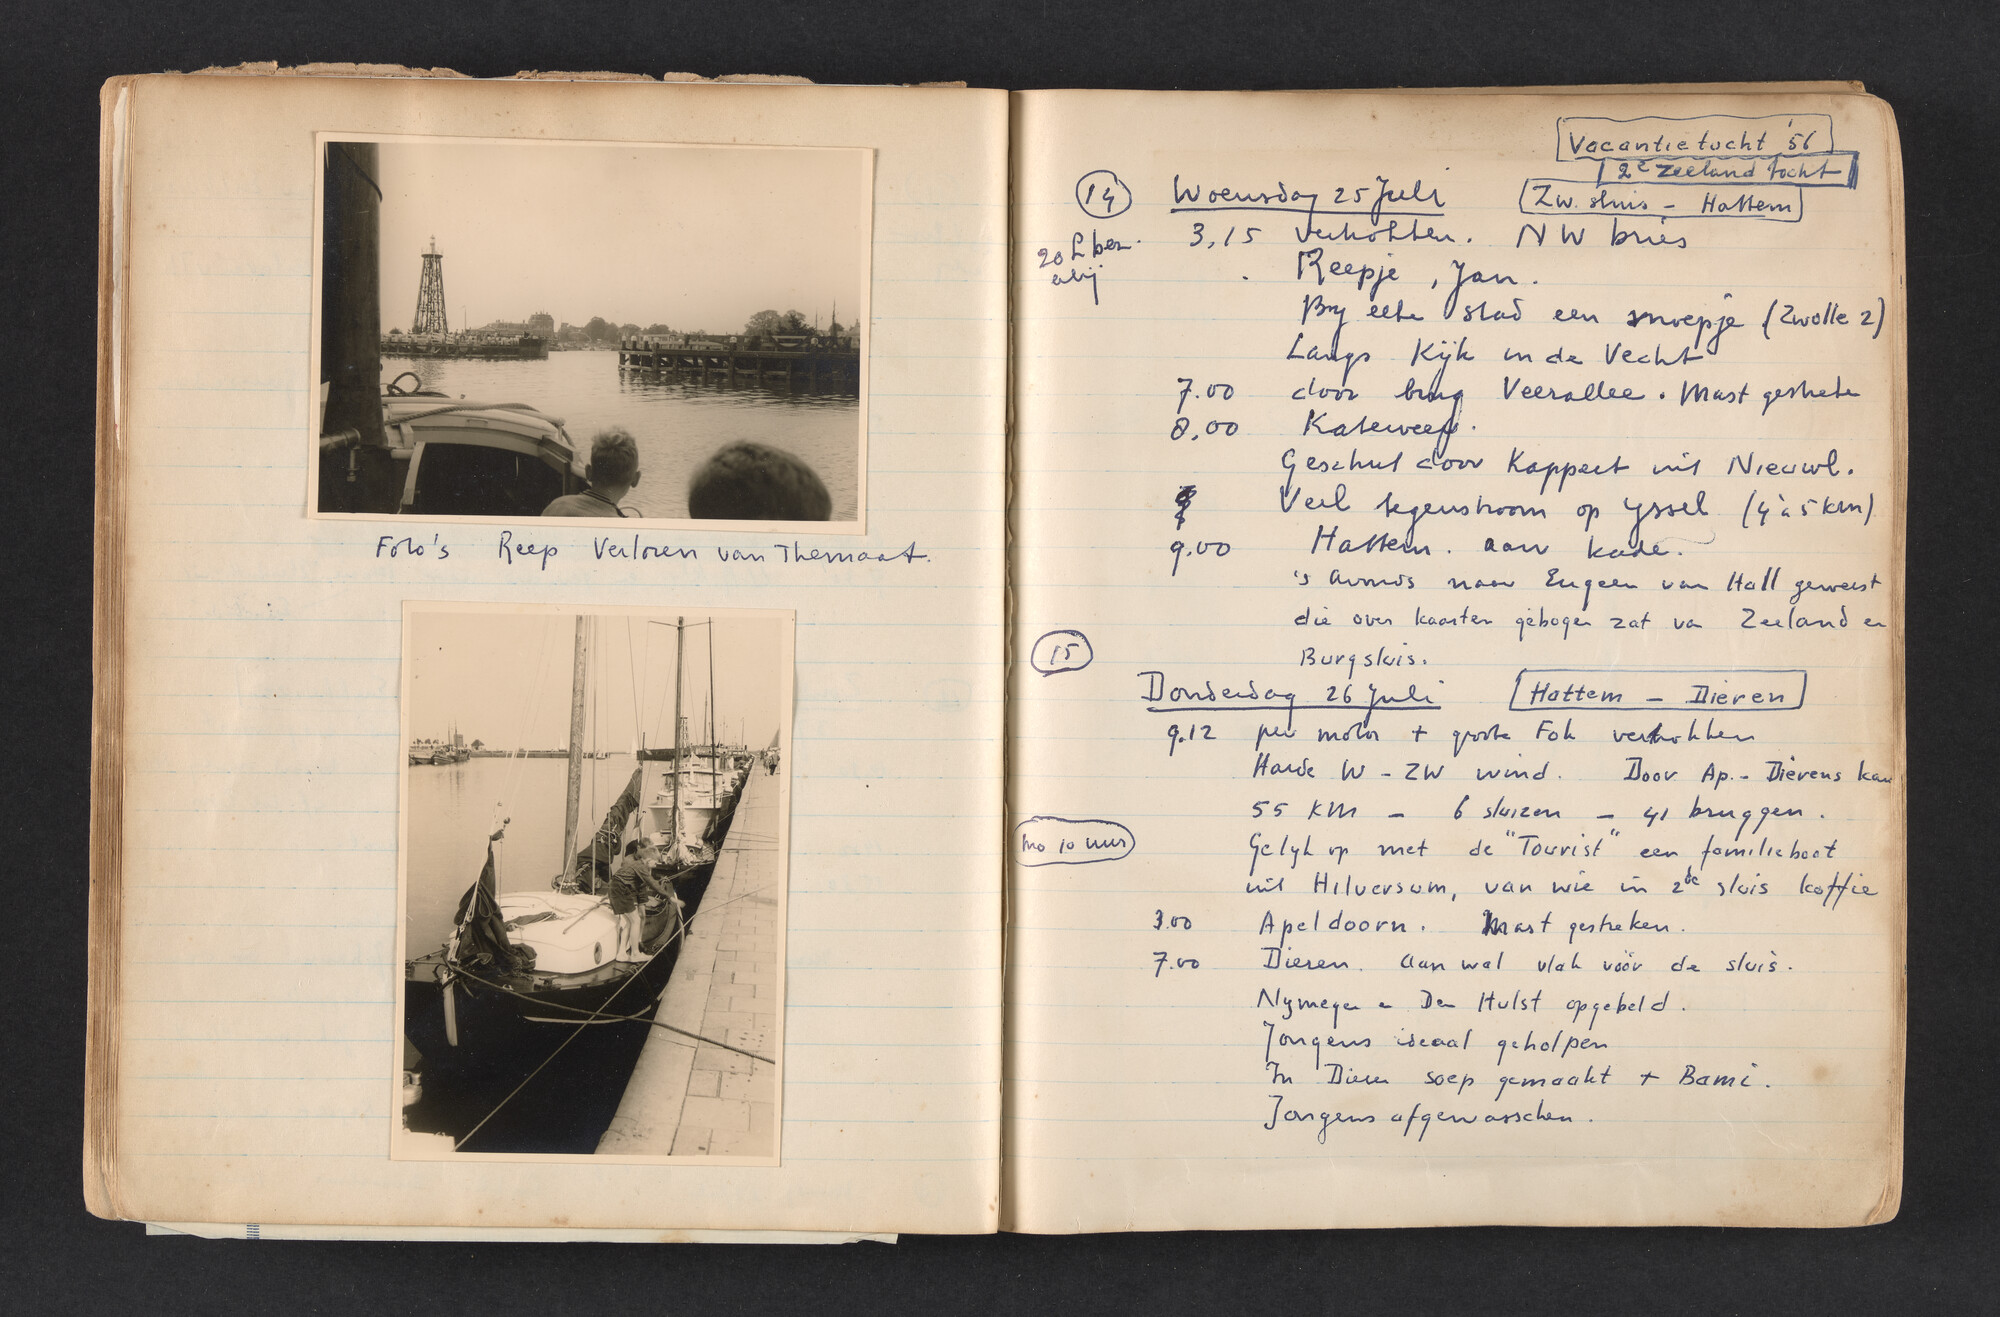 Foto's Reep Verloren van Themaat.
Vacantietocht '56
2e Zeeland tocht
14 Woensdag 25 Juli
Zw. sluis - Hattem
20 L ben. 3,15 vertrokken. NW bries
Reepje, Jan.
By elke stad een snoepje (Zwolle 2)
Langs Kijk in de Vecht
7.00 door brug Veerallee. Mast gestreke
8,00 Katerveer.
Geschut door Kappert uit Nieuwl.
Veel tegenstroom op Yssel (4 à 5 km)
9.00 Hattem. aan kade.
's avonds naar Eugeen van Hall geweest
die over kaarten gebogen zat van Zeeland en
Burgsluis.
15
Donderdag 26 Juli
Hattem - Dieren
9.12 per motor + groote Fok vertrokken
Harde W - ZW wind. Door Ap. - Dierens kan
55 KM - 6 sluizen - 41 bruggen.
mo 10 uur
Gelyk op met de "Tourist" een familieboot
uit Hilversum, van wie in 2de sluis koffie
3.00 Apeldoorn. Mast gestreken.
7.00 Dieren. aan wal vlak vóór de sluis.
Nymegen en Den Hulst opgebeld.
Jongens ideaal geholpen
In Dieren soep gemaakt + Bami.
Jongens afgewasschen.